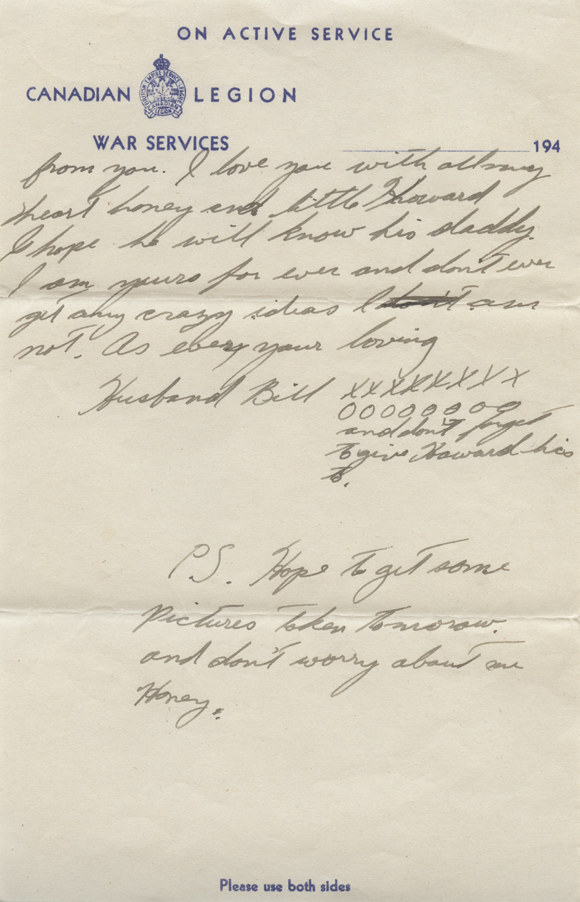 ON ACTIVE SERVICE
CANADIAN LEGION
WAR SERVICES 194
from you. I love you with all my
heart honey and little Howard
I hope he will know his daddy.
I am yours for ever and don't ever
get any crazy ideas I don't am
not. As ever your loving
Husband Bill XXXXXXXX
OOOOOOOO
and don't forget
to give Howard his
to.
PS. Hope to get some
Pictures taken tomorow.
and don't worry about me
Honey.
Please use both sides